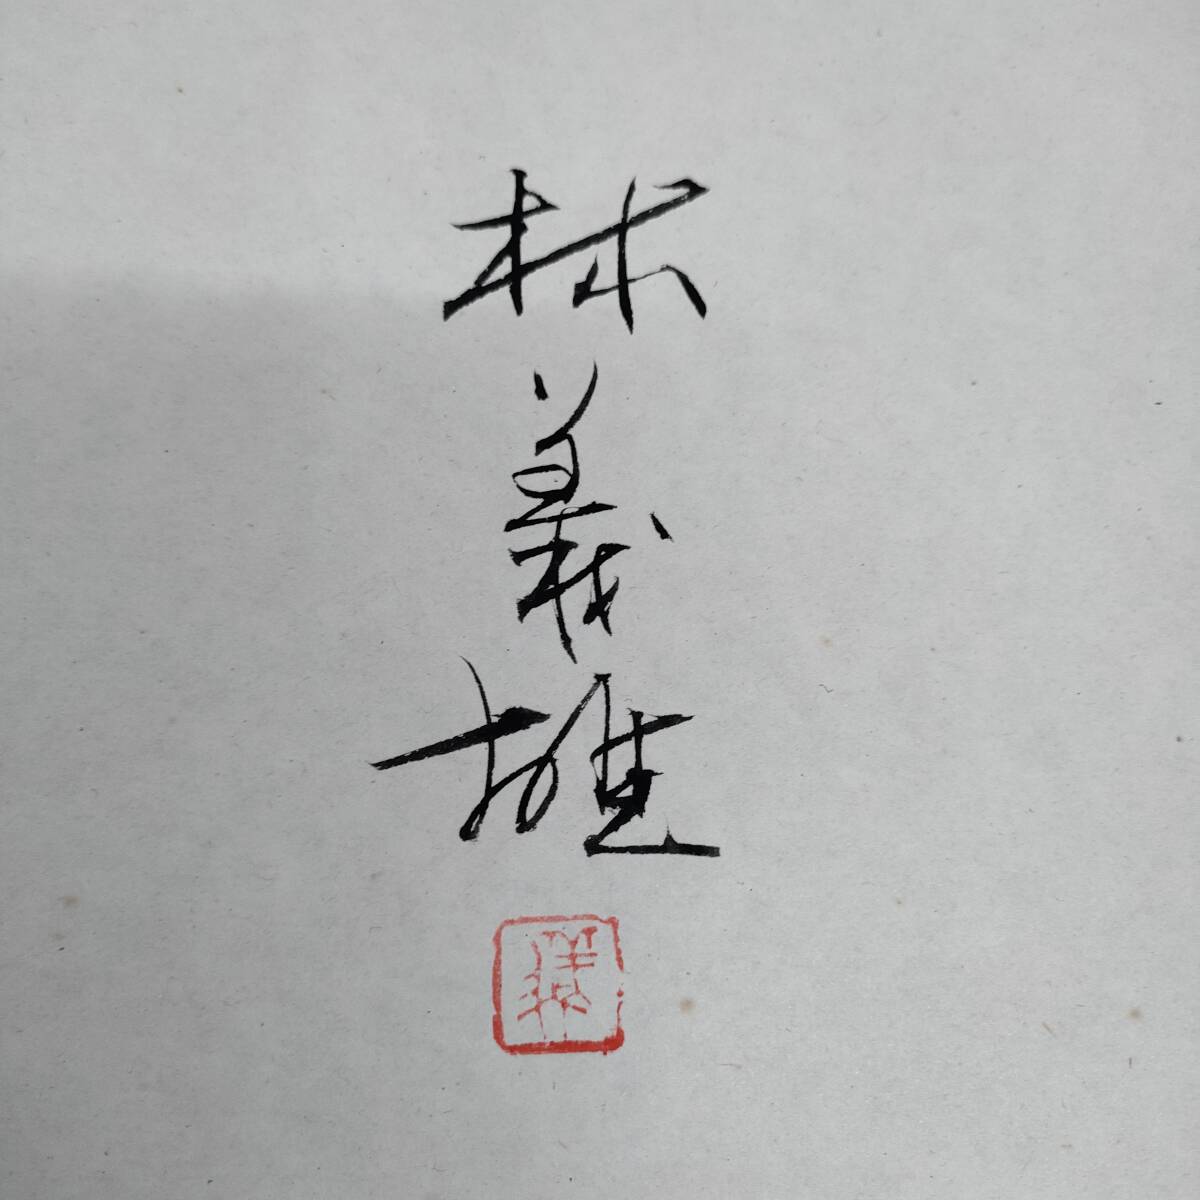 林
義
雄